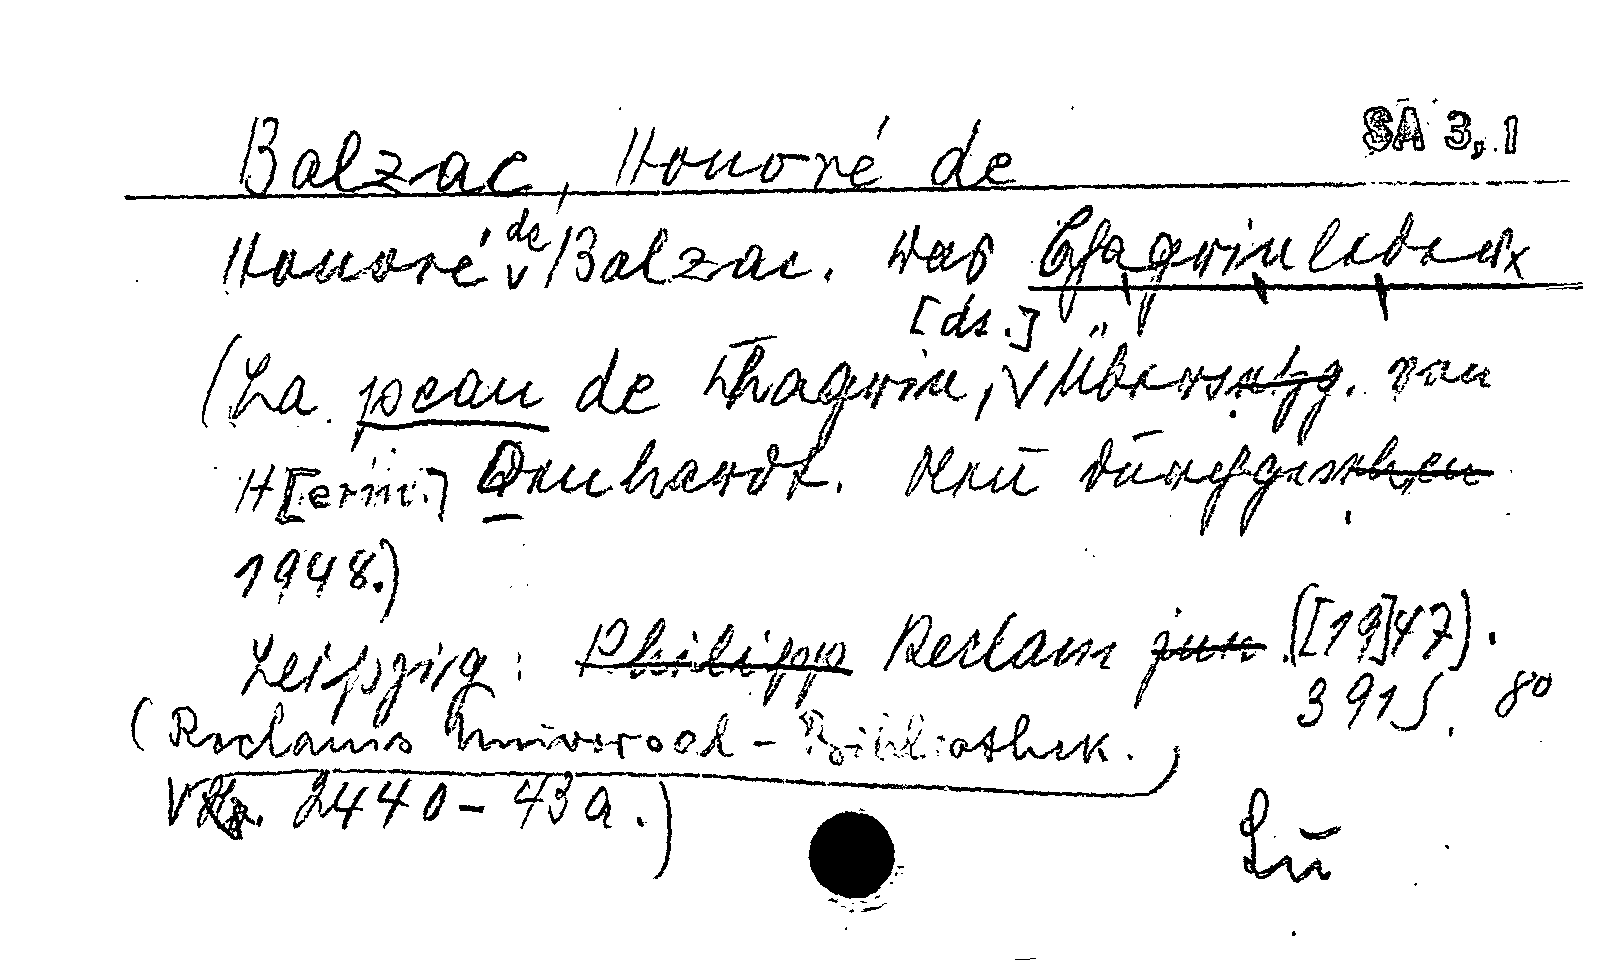 Balzac, Honoré de SA 3,1
Honoré de Balzac. Das Chagrinleder
(La peau de chagrin, [dt.] Übersetzg. von
H[erm.] Denhardt. Neu durchgesehen
1948.)
Leipzig: Philipp Reclam jun ([19]47).
391 S. 8°
(Reclams Universal-Bibliothek.
2440-43a.)